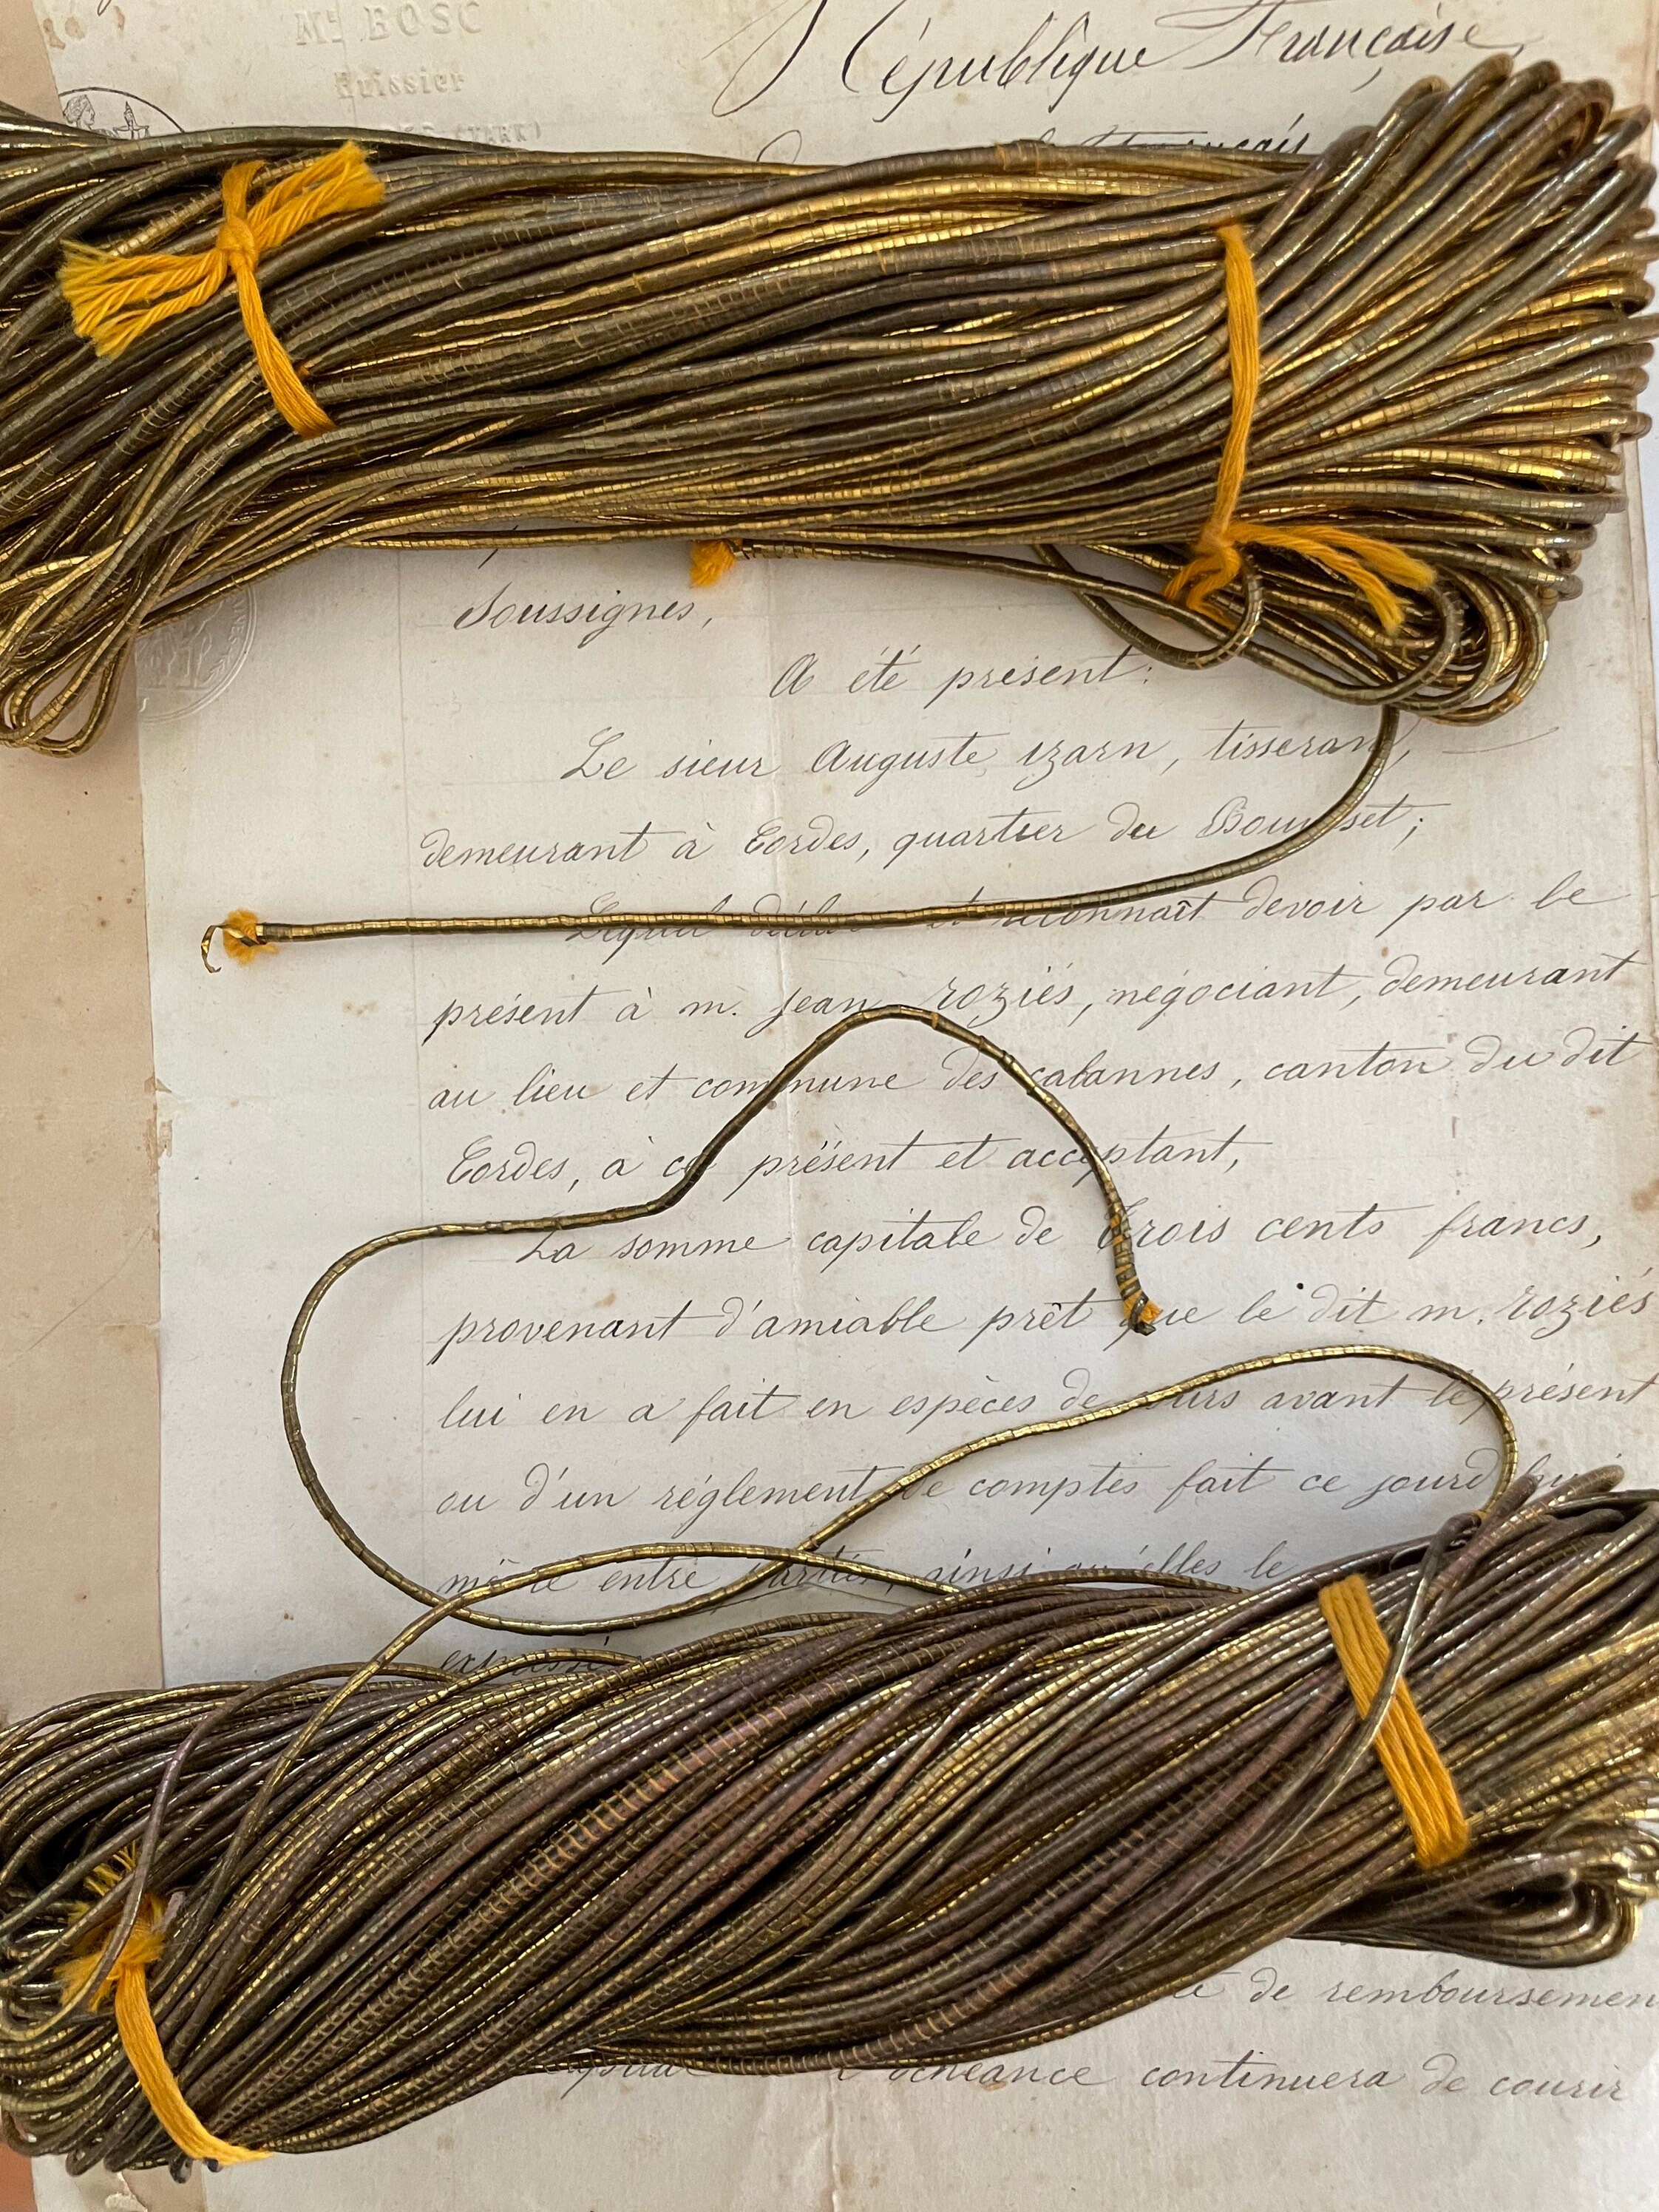 Me BOSC
Huissier
(TARN)
République Française
Soussignés,
A été présent:
Le sieur Auguste Izarn, tisserand,
demeurant à Cordes, quartier du
Lequel et reconnaît devoir par le
présent à m. Jean Roziés, négociant, demeurant
au lieu et commune des cabannes, canton du dit
Cordes, à ce présent et acceptant,
La somme capitale de Trois cents francs,
provenant d'amiable prêt que le dit m. Roziés
lui en a fait en espèces de avant le présent
ou d'un réglement de comptes fait ce jourd'hui
même entre parties, ainsi qu'elles le
de remboursement
échéance continuera de courir